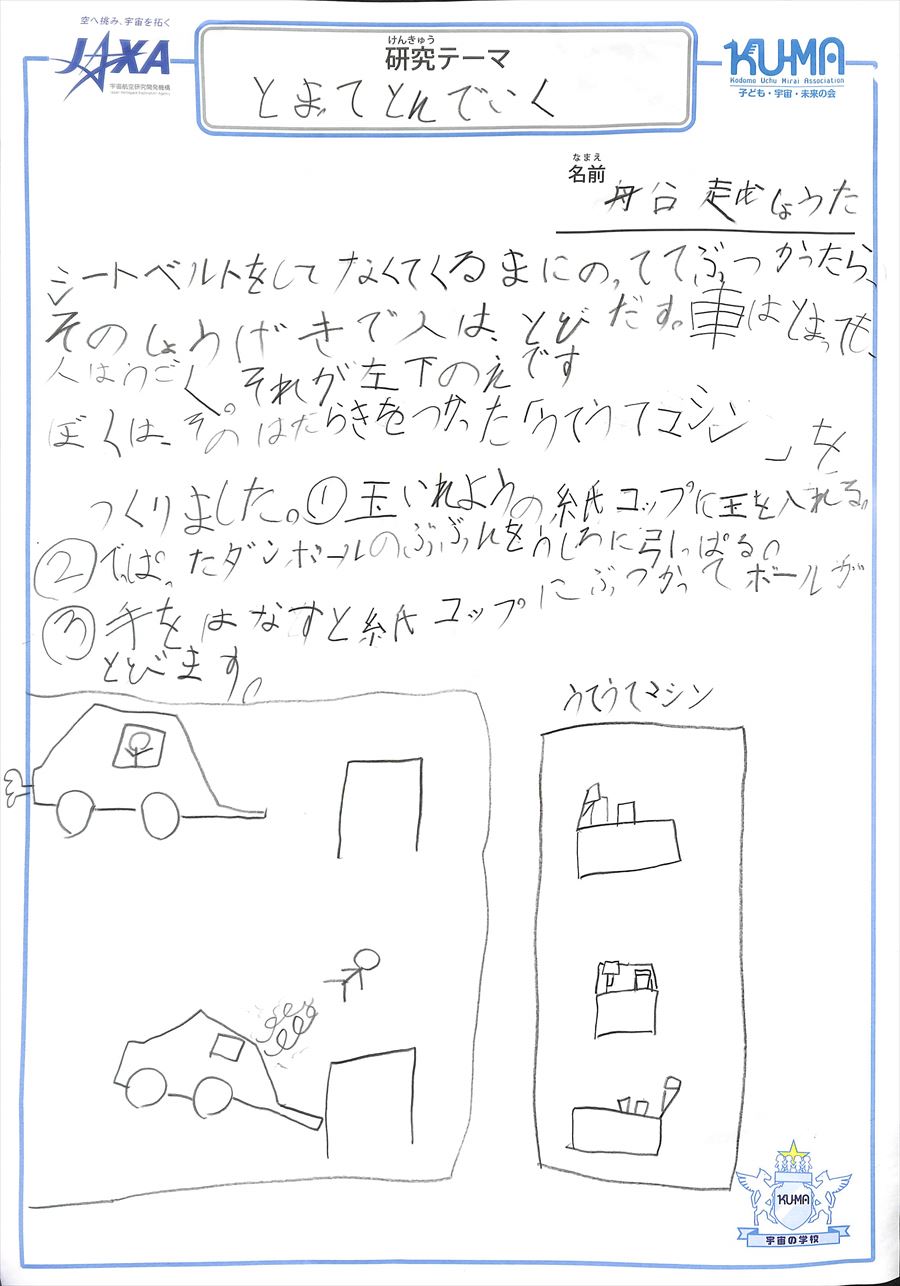 空へ挑み、宇宙を拓く
JAXA
宇宙航空研究開発機構
Japan Aerospace Exploration Agency
けんきゅう
研究テーマ
とまってとんでいく
KUMA
Kodomo Uchu Mirai Association
子ども・宇宙・未来の会
なまえ
名前
舟谷 しょうた
シートベルトをしてなくてくるまにのっててぶつかったら、
そのしょうげきで人は、とびだす。車はとまっても、
人はうごく。それが左下のえです
ぼくは、そのはたらきをつかった「うてうてマシン」を
つくりました。①玉いれようの紙コップに玉を入れる。
②でっぱったダンボールのぶぶんをうしろに引っぱる。
③手をはなすと紙コップにぶつかってボールが
とびます。
うてうてマシン
KU-MA
宇宙の学校